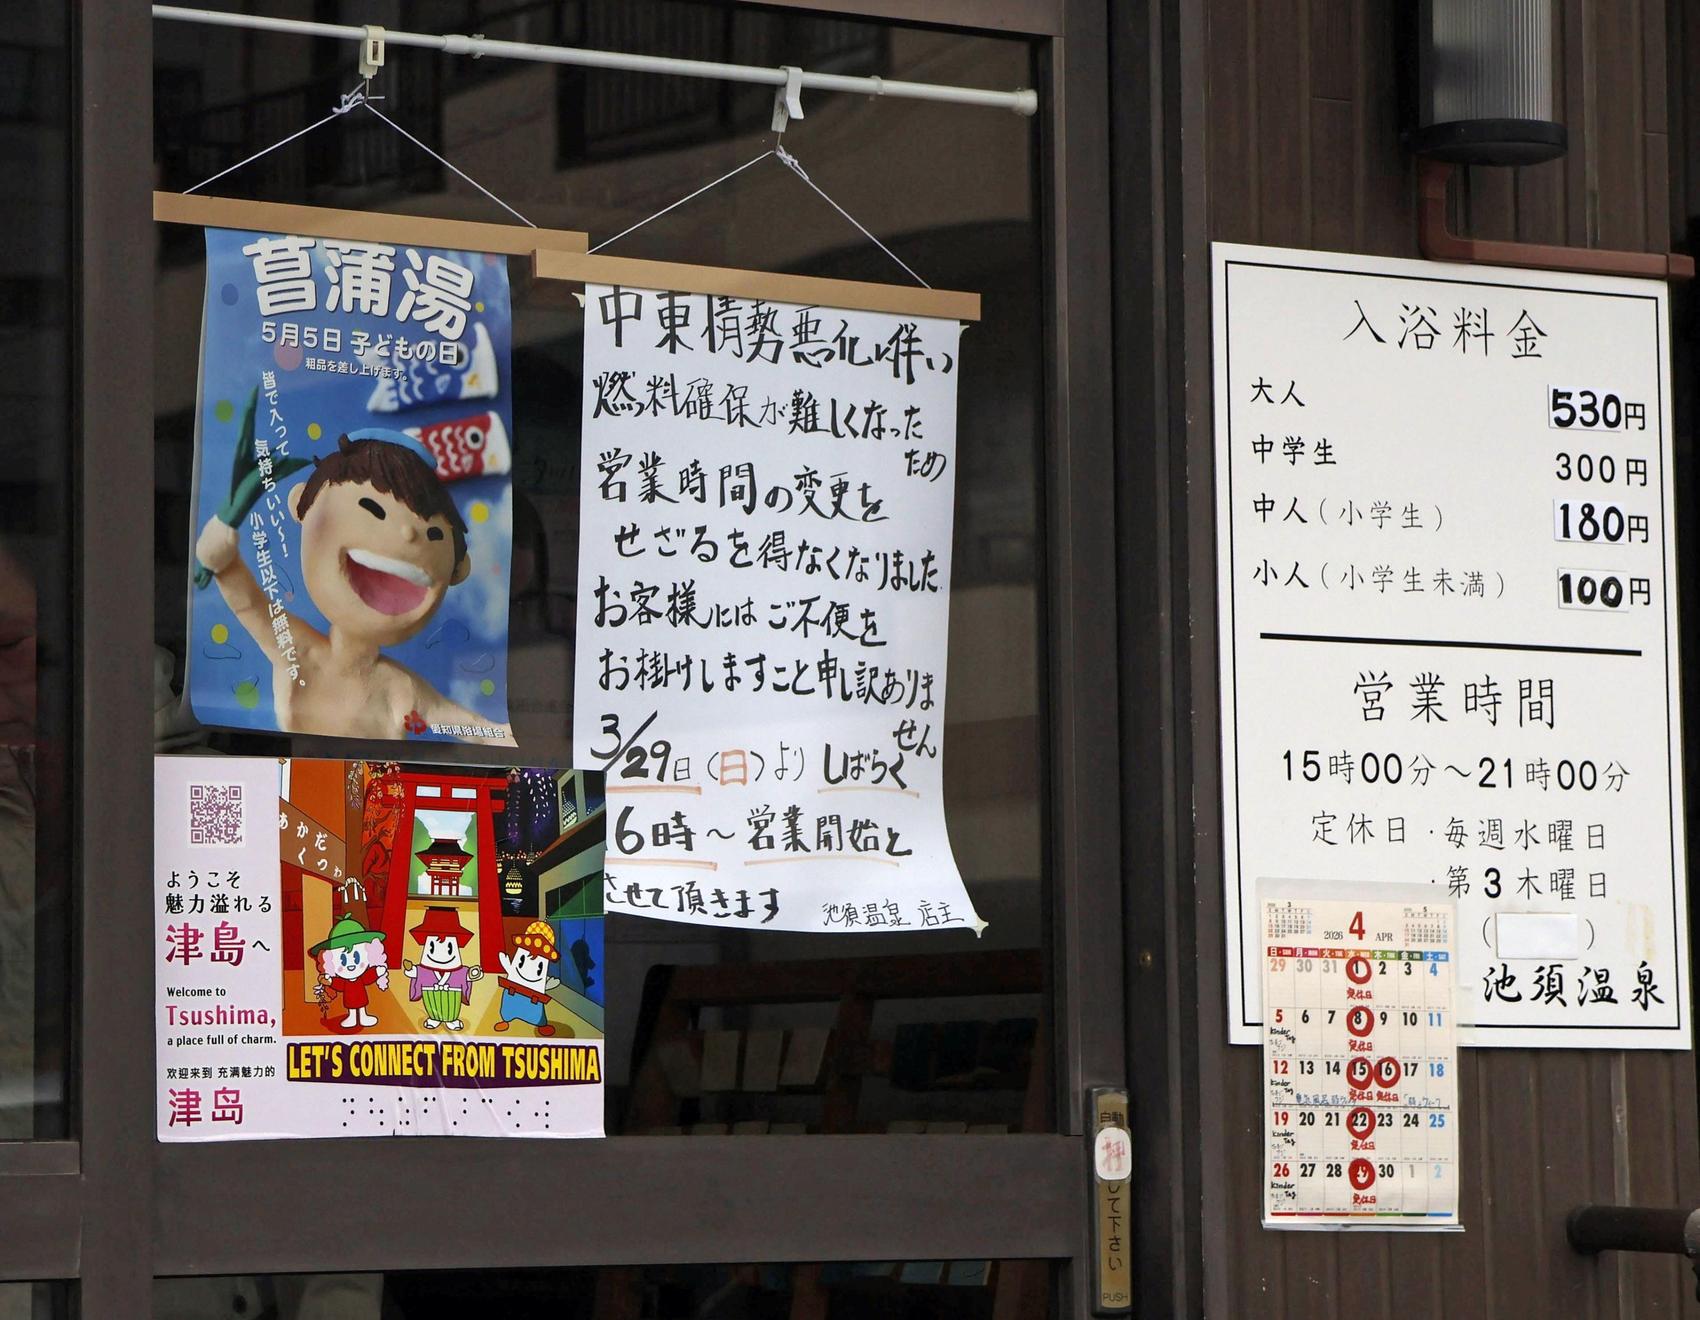 菖蒲湯
5月5日 子どもの日
粗品を差し上げます。
皆で入って
気持ちいい〜!
小学生以下は無料です。
愛知県浴場組合
中東情勢悪化に伴い
燃料確保が難しくなった
ため
営業時間の変更を
せざるを得なくなりました
お客様にはご不便を
お掛けしますこと申し訳ありま
せん
3/29日(日)より しばらく
16時〜営業開始と
させて頂きます
池須温泉 店主
あかだ
くつわ
ようこそ
魅力溢れる
津島へ
Welcome to
Tsushima,
a place full of charm.
欢迎来到 充满魅力的
津岛
LET'S CONNECT FROM TSUSHIMA
入浴料金
大人 530円
中学生 300円
中人(小学生) 180円
小人(小学生未満) 100円
営業時間
15時00分〜21時00分
定休日・毎週水曜日
・第3木曜日
( )
池須温泉
2026 4 APR
日 月 火 水 木 金 土
29 30 31 1 2 3 4
定休日
5 6 7 8 9 10 11
Kinder 定休日
12 13 14 15 16 17 18
Kinder Tag
19 20 21 22 23 24 25
Kinder Tag 定休日
26 27 28 29 30 1 2
Kinder Tag 定休日
自動
押して下さい
PUSH